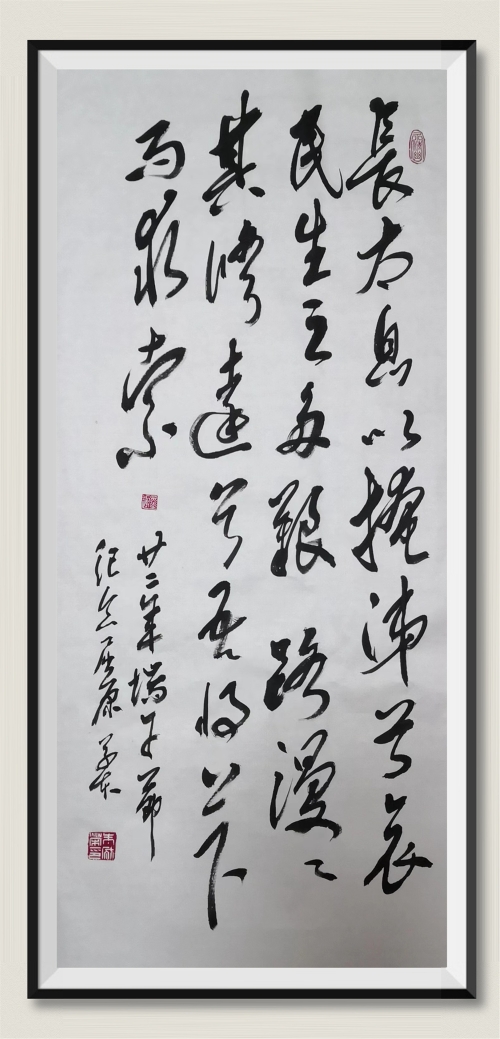 長太息以掩涕兮哀
民生之多艱路漫々
其修遠兮吾將上下
而求索
廿二年端午節
纪念屈原